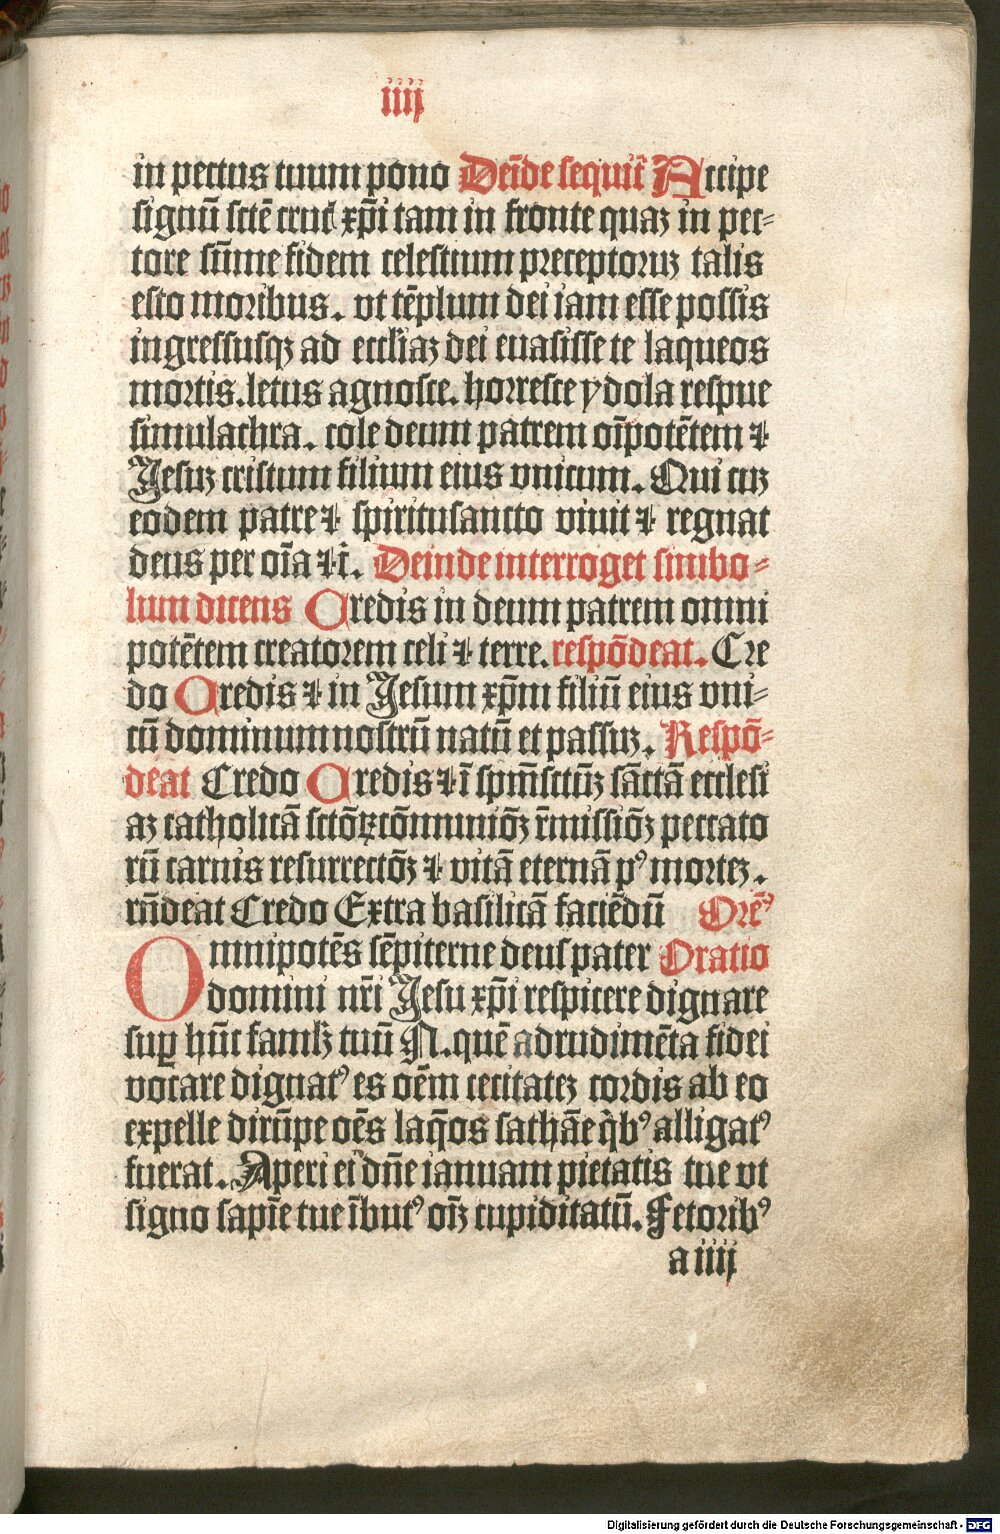 iiij
in pectus tuum pono Deīde sequit᷑ Accipe
signū sctē cruc᷑ xp̄i tam in fronte quaꝫ in pec⸗
tore sūme fidem celestium preceptoruꝫ talis
esto moribus. vt tēplum dei iam esse possis
ingressusqꝫ ad eccl̄iaꝫ dei euasisse te laqueos
mortis. letus agnosce. horresce ydola respue
simulachra. cole deum patrem oīpotētem ⁊
Jesuꝫ cristum filium eius vnicum. Qui cuꝫ
eodem patre ⁊ spiritusancto viuit ⁊ regnat
deus per oīa ⁊ c̄. Deinde interroget simbo⸗
lum dicens Credis in deum patrem omni
potētem creatorem celi ⁊ terre. respōdeat. Cre
do Credis ⁊ in Jesum xp̄m filiū eius vni⸗
cū dominum nostrū natū et passuꝫ. Respō⸗
deat Credo Credis ⁊ ī spm̄sctūꝫ sāctā ecclesi
aꝫ catholicā sctōꝝ cōmuniōꝫ r̄missiōꝫ peccato
rū carnis resurrectōꝫ ⁊ vitā eternā pꝰ morteꝫ.
rn̄deat Credo Extra basilicā faciēdū Orēꝰ
Omnipotēs sēpiterne deus pater Oratio
domini nr̄i Jesu xp̄i respicere dignare
suꝑ hūc famlꝫ tuū N. quē ad rudimēta fidei
vocare dignatꝰ es oēm cecitateꝫ cordis ab eo
expelle dirūpe oēs laq̄os sathāe q̇bꝰ alligatꝰ
fuerat. Aperi ei dn̄e ianuam pietatis tue vt
signo sapīe tue ībutꝰ oīꝫ cupiditatū. Fetoribꝰ
a iiij
Digitalisierung gefördert durch die Deutsche Forschungsgemeinschaft - DFG